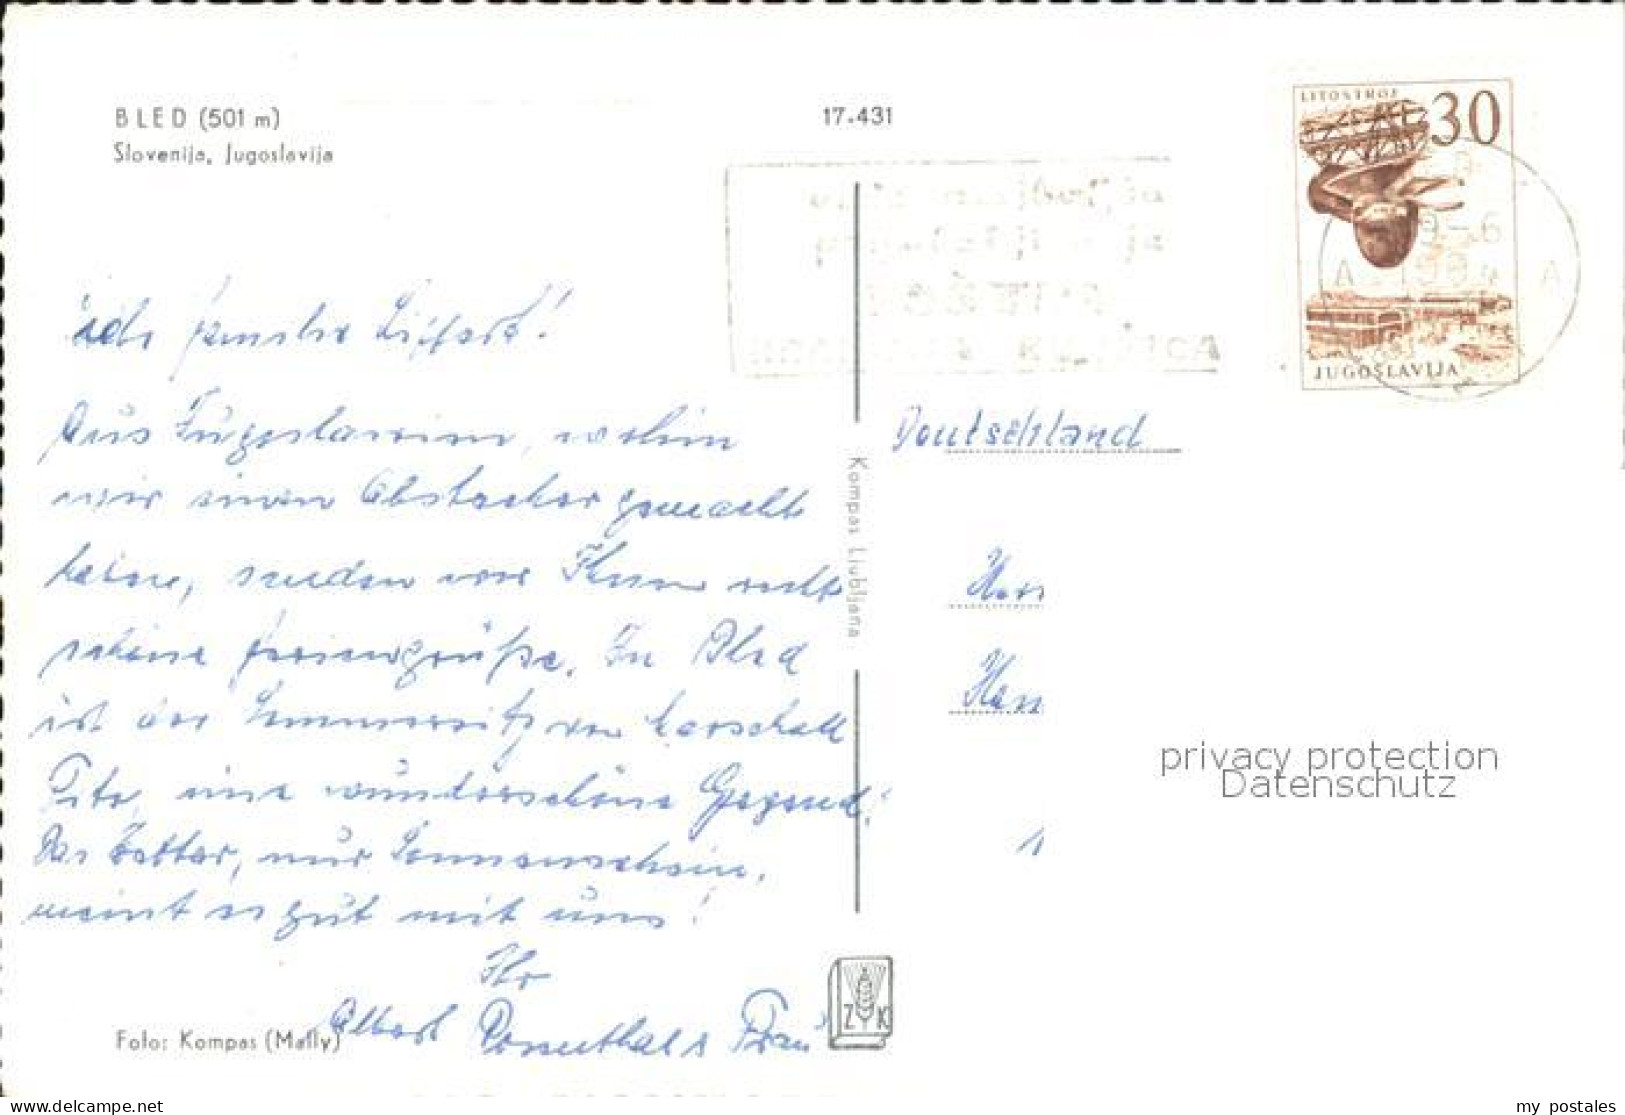 BLED (501 m)
Slovenija, Jugoslavija
17.431
LITOSTROJ
30
JUGOSLAVIJA
Familie
Aus Jugoslavien, wohin
wir einen Abstecher gemacht
haben, senden wir Ihnen recht
schöne Feriengrüße. In Bled
ist der Sommersitz von Marschall
Tito, eine wunderschöne Gegend!
Das Wetter, nur Sonnenschein,
meint es gut mit uns!
Ihr
Albert Rosenthal & Frau
Deutschland
Kompas Ljubljana
Herr
privacy protection
Datenschutz
Foto: Kompas (Mally)
ZK
my postales